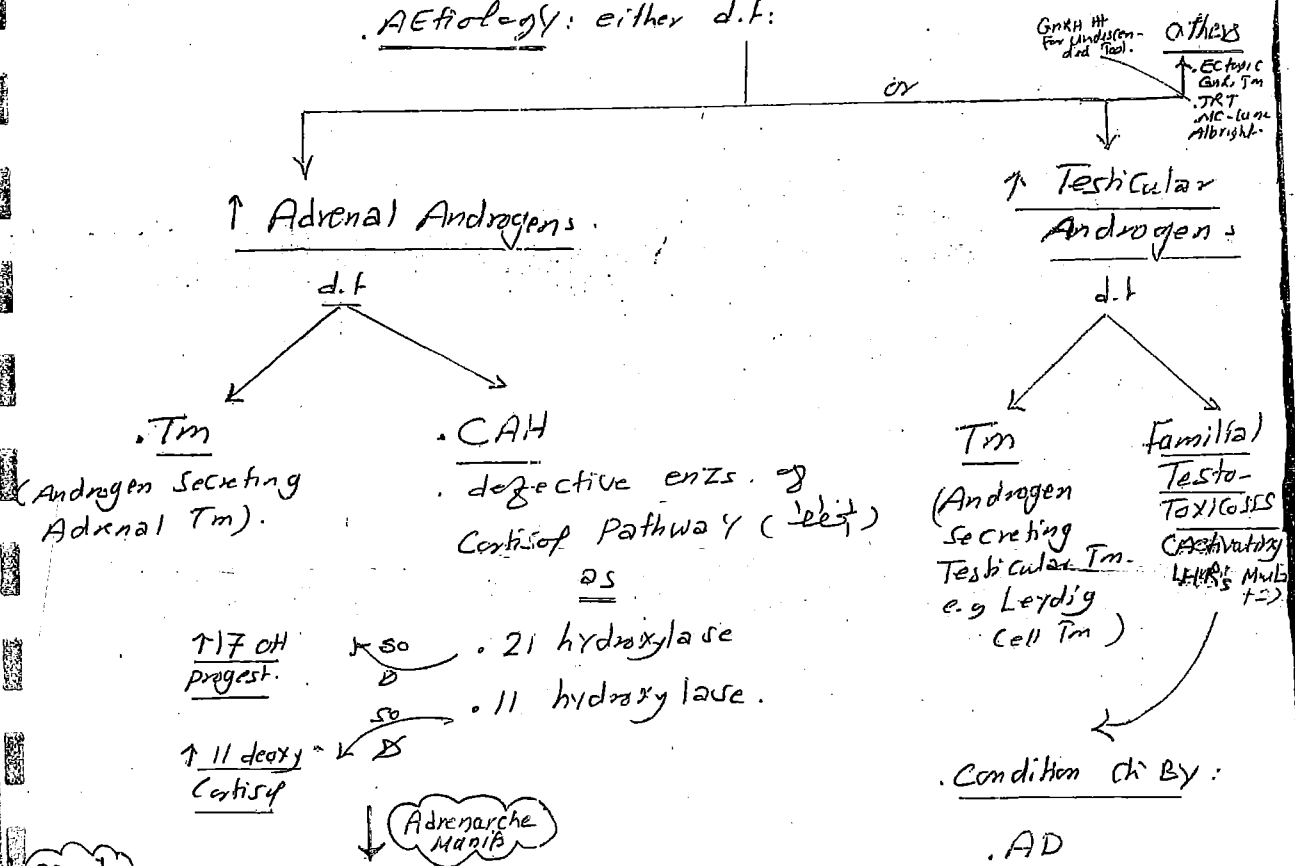 .AEtiology: either d.t:
GnRH ttt
For Undescen-
ded
others
.Ectopic
GnR. Tm
.TRT
.Mc-Cune
Albright.
or
↑ Adrenal Androgens.
d.t
.Tm
(Androgen Secreting
Adrenal Tm).
.CAH
. defective enzs. of
Cortisol Pathway
as
. 21 hydroxylase
so
↑17 OH
progest.
. 11 hydroxylase.
so
↑ 11 deoxy
Cortisol
Adrenarche
Manif
↑ Testicular
Androgens
d.t
Tm
(Androgen
Secreting
Testicular Tm.
e.g Leydig
Cell Tm)
Familial
Testo-
Toxicosis
(Activating
LHR's
.Condition ch By:
.AD